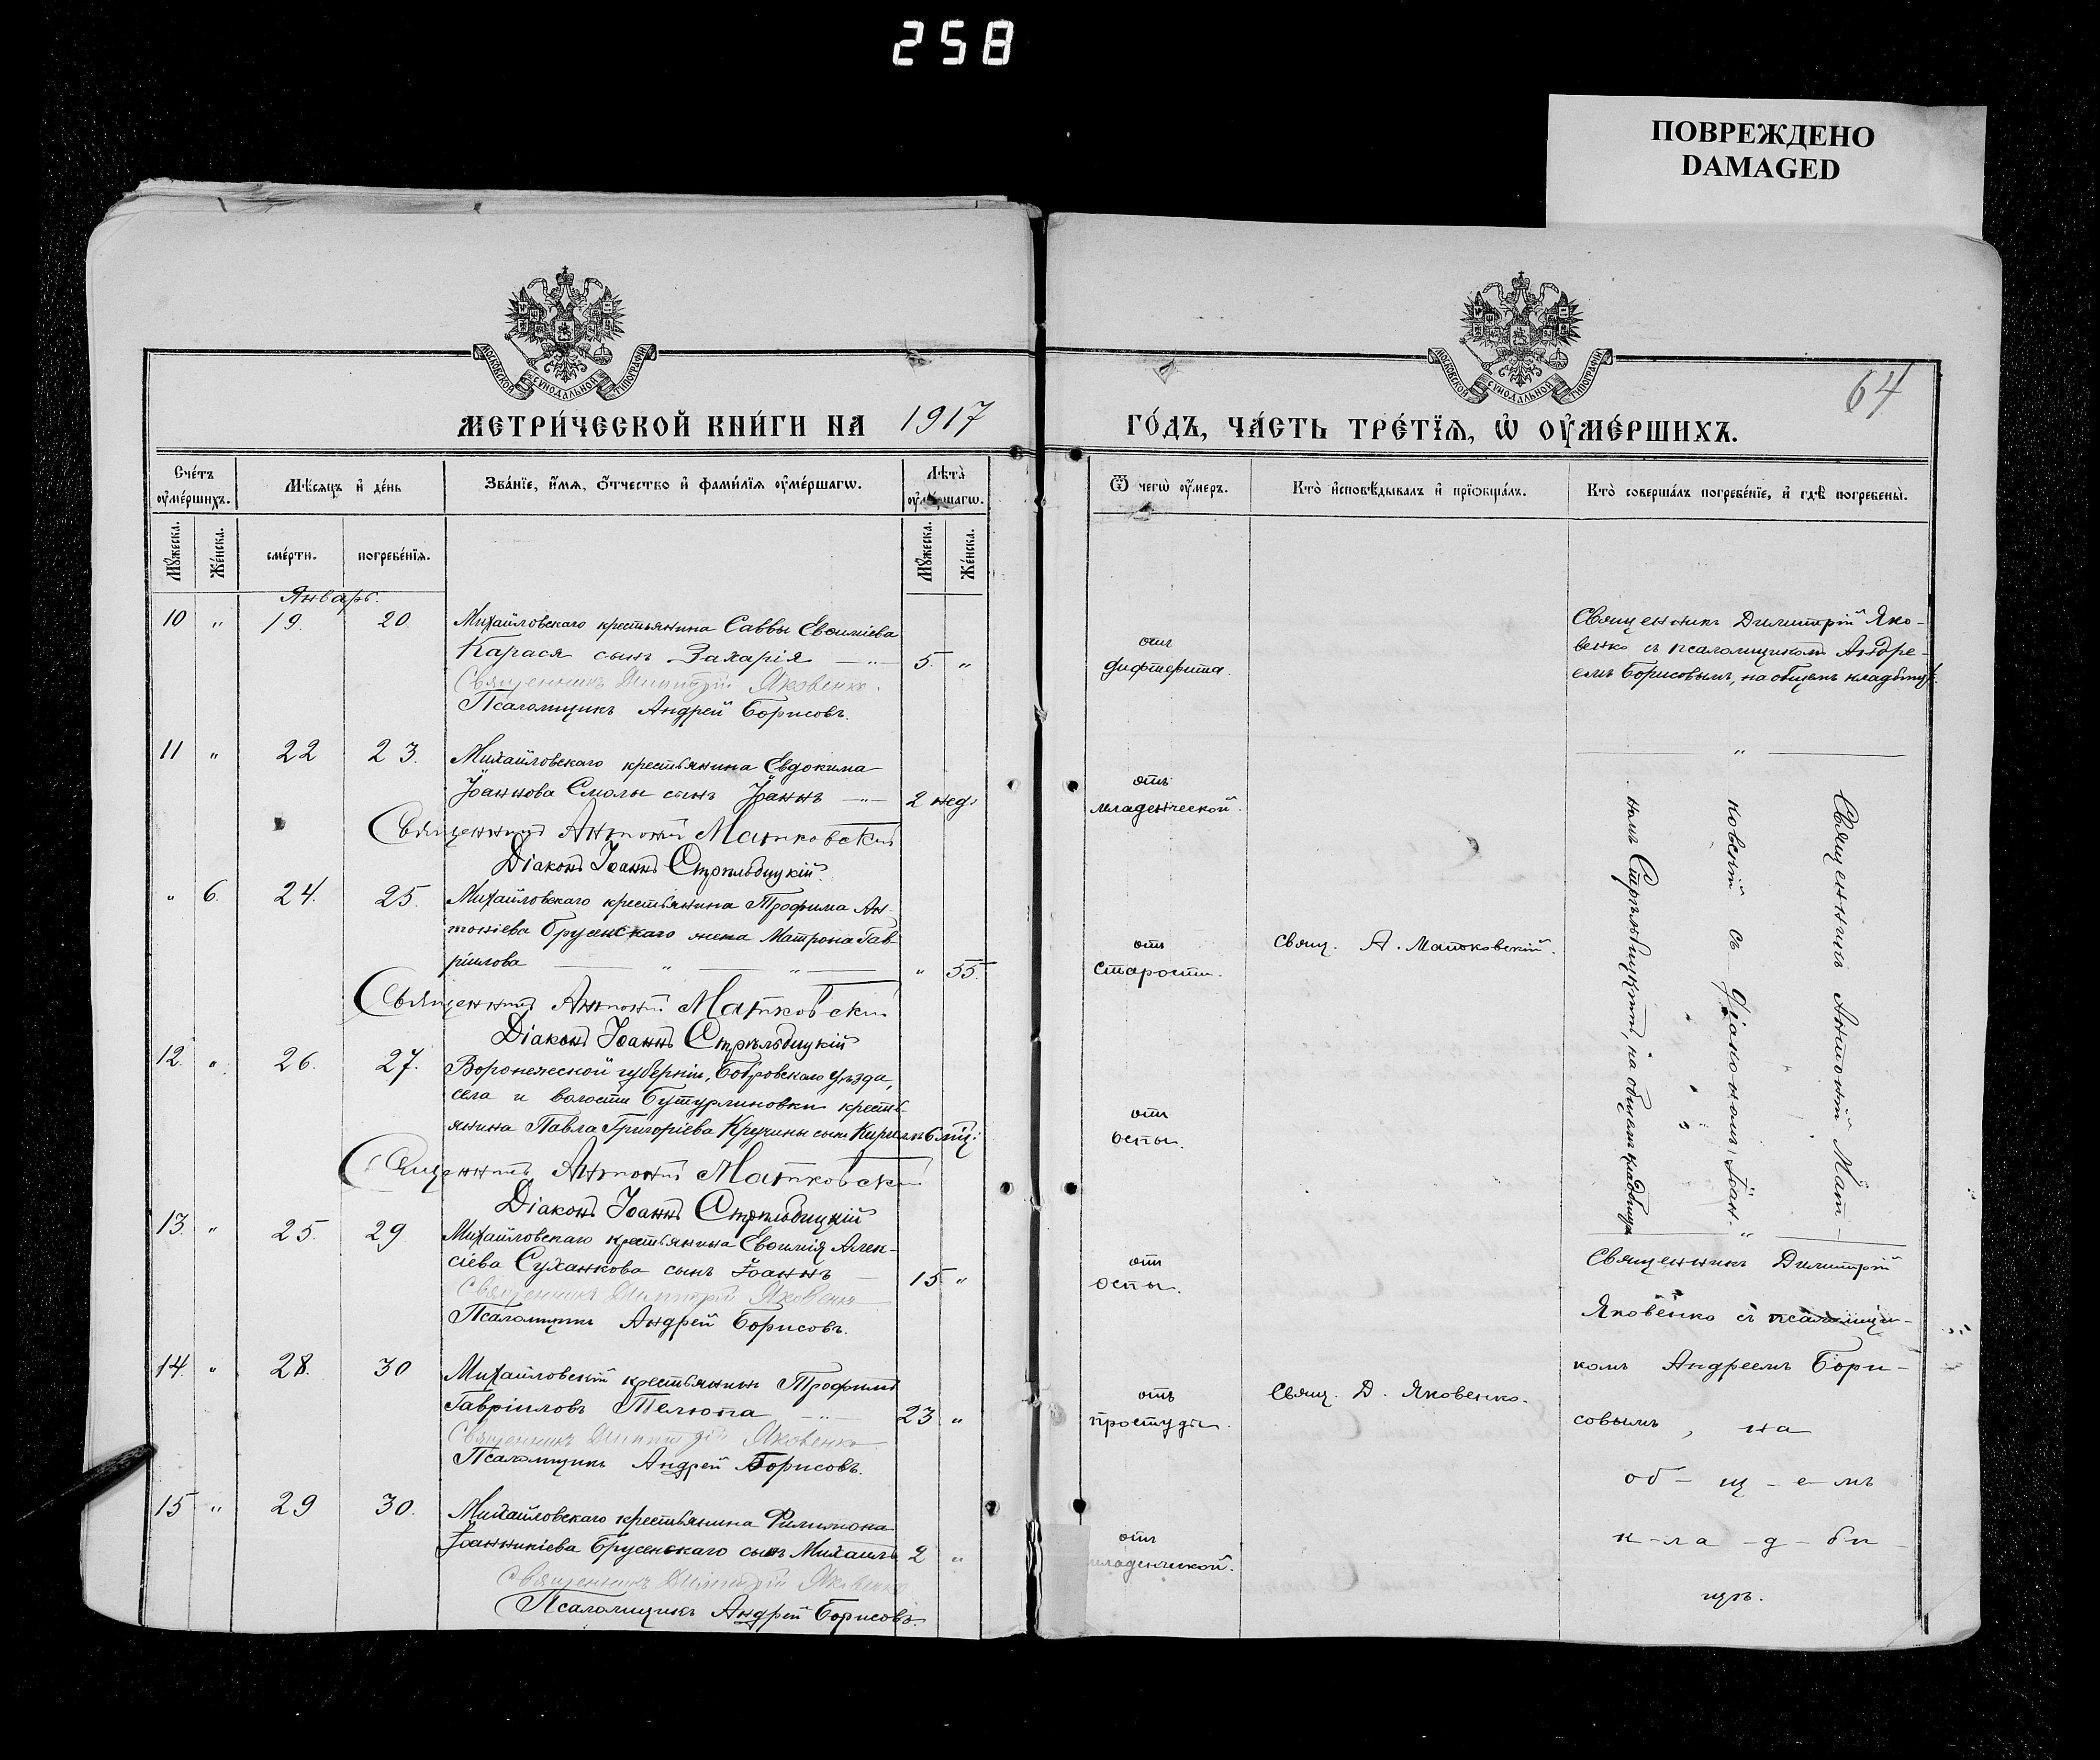 258
ПОВРЕЖДЕНО
DAMAGED
МОСКОВСКОЙ СѴНОДАЛЬНОЙ ТИПОГРАФІИ
МОСКОВСКОЙ СѴНОДАЛЬНОЙ ТИПОГРАФІИ
64
МЕТРИ́ЧЕСКОЙ КНИ́ГИ НА 1917
ГО́ДЪ, ЧА́СТЬ ТРЕ́ТЇѦ, Ѡ҆ ОУ҆МЕ́РШИХЪ.
Сче́тъ оу҆ме́ршихъ.
Мѣ́сѧцъ и҆ де́нь
Зва́нїе, и҆́мѧ, ѻ҆́тчество и҆ фами́лїѧ оу҆ме́ршагѡ.
Лѣ́та̀ оу҆ме́ршагѡ.
Ѿ чегѡ̀ оу҆́меръ.
Кто̀ и҆сповѣ́дывалъ и҆ прїѡбща́лъ.
Кто̀ соверша́лъ погребе́нїе, и҆ гдѣ̀ погребены̀.
Мꙋ́жеска.
Же́нска.
сме́рти.
погребе́нїѧ.
Мꙋ́жеска.
Же́нска.
Январь.
10 " 19. 20. Михайловскаго крестьянина Саввы Евѳиміева
Карася сынъ Захарія — " — 5. "
Священникъ Димитрій Яковенко.
Псаломщикъ Андрей Борисовъ.
отъ
дифтерита.
Священникъ Димитрій Яко-
венко съ псаломщикомъ Андре-
емъ Борисовымъ, на общемъ кладбищѣ.
11 " 22 23. Михайловскаго крестьянина Евдокима
Іоаннова Смолы сынъ Іоаннъ — " — 2 нед.
Священникъ Антоній Матковскій
Діаконъ Іоаннъ Стрѣльбицкій.
отъ
младенческой.
"
Священникъ Антоній Мат-
ковскій съ діакономъ Іоан-
номъ Стрѣльбицкимъ, на общемъ кладбищѣ
" 6. 24. 25. Михайловскаго крестьянина Трофима Ан-
тоніева Брусенскаго жена Матрона Гав-
ріилова — " — " — " 55.
Священникъ Антоній Матковскій
Діаконъ Іоаннъ Стрѣльбицкій
отъ
старости.
Свящ. А. Матковскій.
12. " 26. 27. Воронежской губерніи, Бобровскаго уѣзда,
села и волости Бутурлиновки кресть-
янина Павла Григоріева Кручины сынъ Кириллъ 6 мѣц.
Священникъ Антоній Матковскій
Діаконъ Іоаннъ Стрѣльбицкій
отъ
оспы.
13. " 25. 29 Михайловскаго крестьянина Евѳимія Алек-
сіева Суханкова сынъ Іоаннъ — 15 "
Священникъ Димитрій Яковенко
Псаломщикъ Андрей Борисовъ.
отъ
оспы.
"
Священникъ Димитрій
Яковенко съ псаломщи-
комъ Андреемъ Бори-
совымъ, на
об - щ - е - мъ
к - ла - д - би -
щѣ.
14. " 28. 30 Михайловскій крестьянинъ Трофимъ
Гавріиловъ Телюпа — " — 23 "
Священникъ Димитрій Яковенко
Псаломщикъ Андрей Борисовъ.
отъ
простуды.
Свящ. Д. Яковенко.
15 " 29 30. Михайловскаго крестьянина Филимона
Іоанникіева Брусенскаго сынъ Михаилъ 2 "
Священникъ Димитрій Яковенко
Псаломщикъ Андрей Борисовъ.
отъ
младенческой.